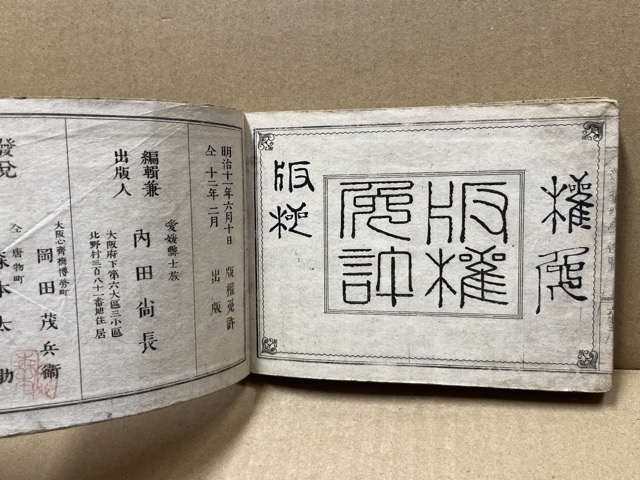 權免
版權
免許
版
明治十一年六月十日 版權免許
仝 十二年二月 出版
愛媛縣士族
編輯兼
出版人
内田尚長
大阪府下第六大區三小區
北野村三百八十一番地住居
發兌
大阪心齋橋博勞町
岡田茂兵衛
仝 唐物町
森本太助